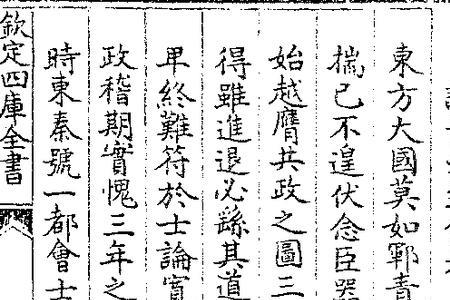 東方大國莫如鄆青
揣已不遑伏念臣器
始越膺共政之圖三
得雖進退必繇其道
卑終難符於士論實
政稽期實愧三年之
時東秦號一都會士
欽定四庫全書